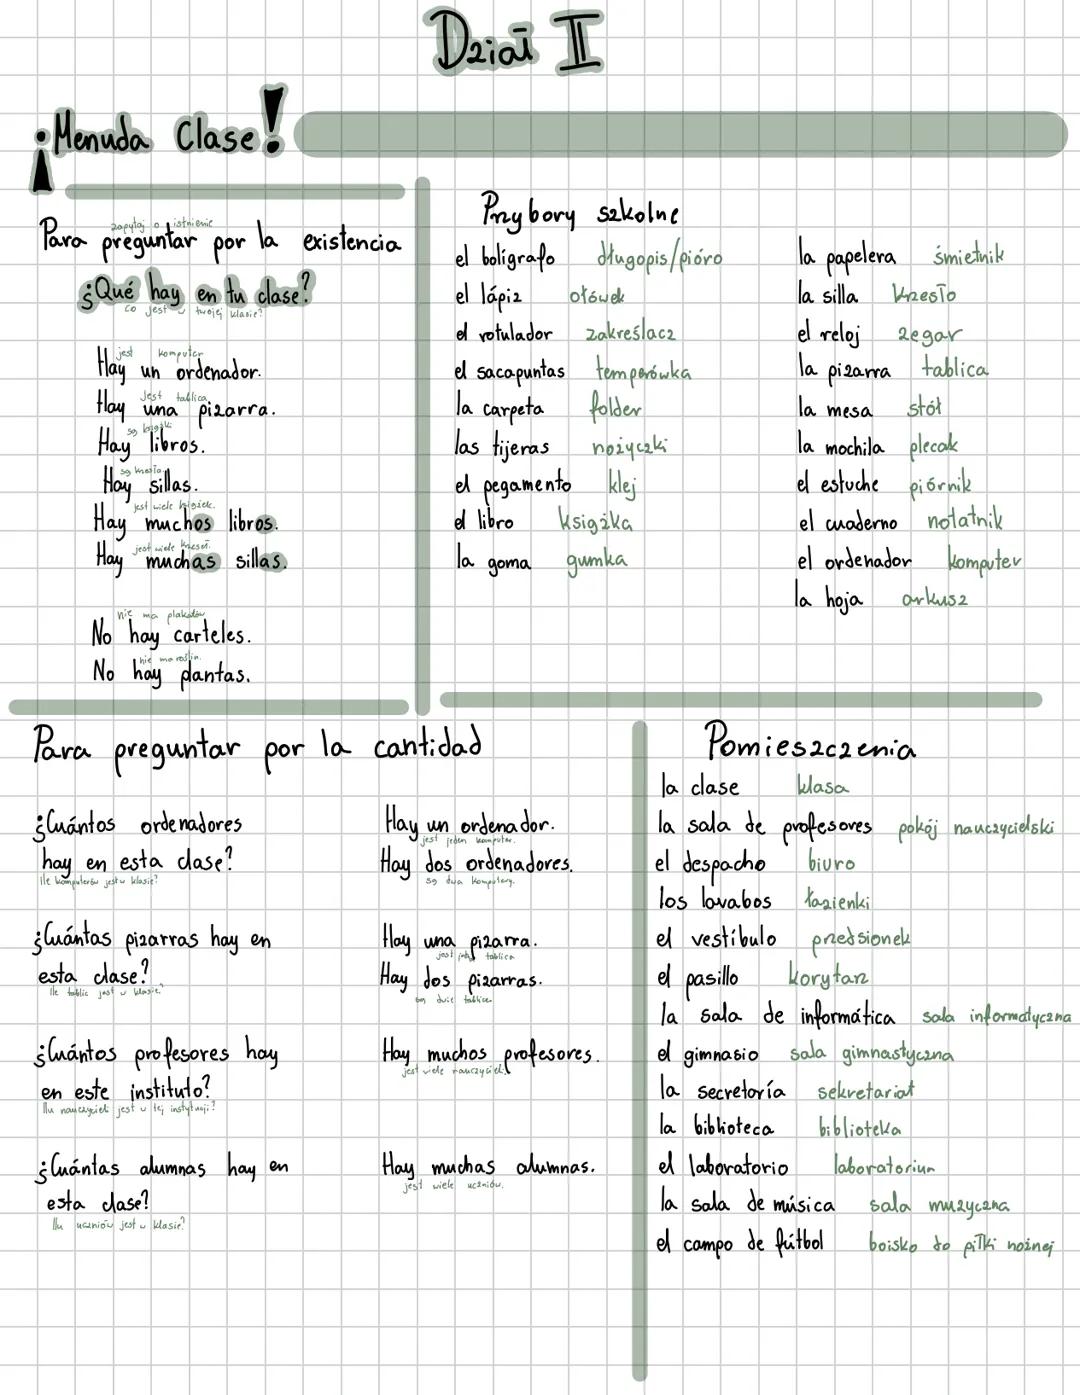 Dział II
¡Menuda Clase!
zapytaj o istnienie
Para preguntar por la existencia
¿Qué hay en tu clase?
co jest w twojej klasie?
jest komputer
Hay un ordenador.
Jest tablica
Hay una pizarra.
są książki
Hay libros.
są krzesła
Hay sillas.
jest wiele książek.
Hay muchos libros.
jest wiele krzeseł.
Hay muchas sillas.
nie ma plakatów
No hay carteles.
nie ma roślin.
No hay plantas.
Przybory szkolne
el boligrafo długopis/pióro
el lápiz ołówek
el rotulador zakreślacz
el sacapuntas temperówka
la carpeta folder
las tijeras nożyczki
el pegamento klej
el libro książka
la goma gumka
la papelera śmietnik
la silla krzesło
el reloj zegar
la pizarra tablica
la mesa stół
la mochila plecak
el estuche piórnik
el cuaderno notatnik
el ordenador komputer
la hoja arkusz
Para preguntar por la cantidad
¿Cuántos ordenadores
hay en esta clase?
Ile komputerów jest w klasie?
Hay un ordenador.
jest jeden komputer.
Hay dos ordenadores.
są dwa komputery.
¿Cuántas pizarras hay en
esta clase?
Ile tablic jest w klasie?
Hay una pizarra.
jest tablica
Hay dos pizarras.
dwie tablice.
¿Cuántos profesores hay
en este instituto?
Ilu nauczycieli jest w tej instytucji?
Hay muchos profesores.
jest wiele nauczycieli.
¿Cuántas alumnas hay en
esta clase?
Ilu uczniów jest w klasie?
Hay muchas alumnas.
jest wiele uczniów.
Pomieszczenia
la clase klasa
la sala de profesores pokój nauczycielski
el despacho biuro
los lavabos łazienki
el vestíbulo przedsionek
el pasillo korytarz
la sala de informática sala informatyczna
el gimnasio sala gimnastyczna
la secretoría sekretariat
la biblioteca biblioteka
el laboratorio laboratorium
la sala de música sala muzyczna
el campo de fútbol boisko do piłki nożnej